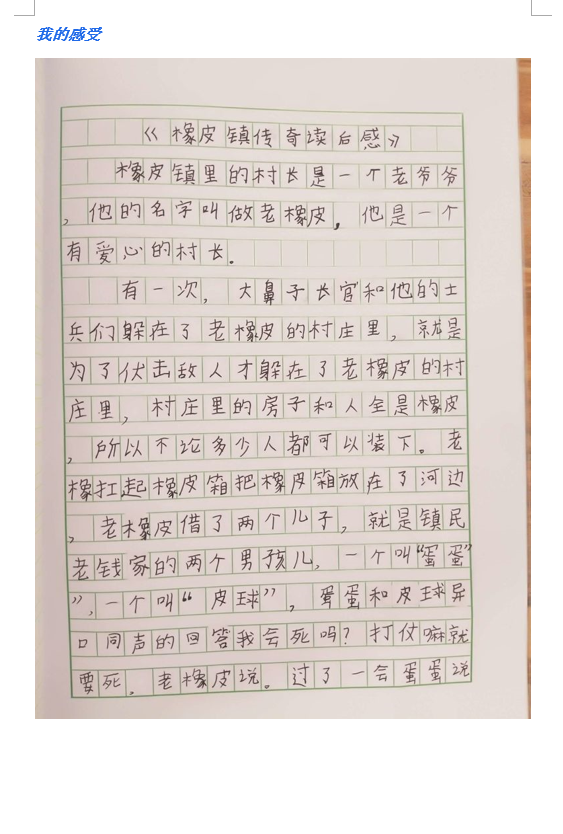 我的感受
《橡皮镇传奇读后感》
橡皮镇里的村长是一个老爷爷
，他的名字叫做老橡皮，他是一个
有爱心的村长．
有一次，大鼻子长官和他的士
兵们躲在了老橡皮的村庄里，就是
为了伏击敌人才躲在了老橡皮的村
庄里，村庄里的房子和人全是橡皮
，所以不论多少人都可以装下。老
橡扛起橡皮箱把橡皮箱放在了河边
，老橡皮借了两个儿子，就是镇民
老钱家的两个男孩儿，一个叫“蛋蛋”
”，一个叫“皮球”，蛋蛋和皮球异
口同声的回答我会死吗？打仗嘛就
要死，老橡皮说。过了一会蛋蛋说